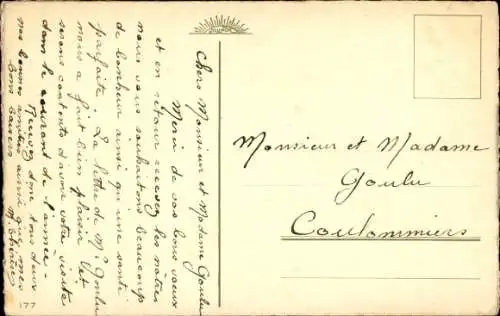 Chers Monsieur et Madame Goulu
Merci de vos bons voeux
et en retour recevez les notres
nous vous souhaitons beaucoup
de bonheur ainsi qu'une santé
parfaite. La lettre de Mr Goulu
nous a fait bien plaisir Let
serons contents d'avoir votre visite
dans le courant de l'année.
Recevez donc tous deux
nos bonnes amitiés ainsi que mes
bons baisers
177
Monsieur et Madame
Goulu
Coulommiers